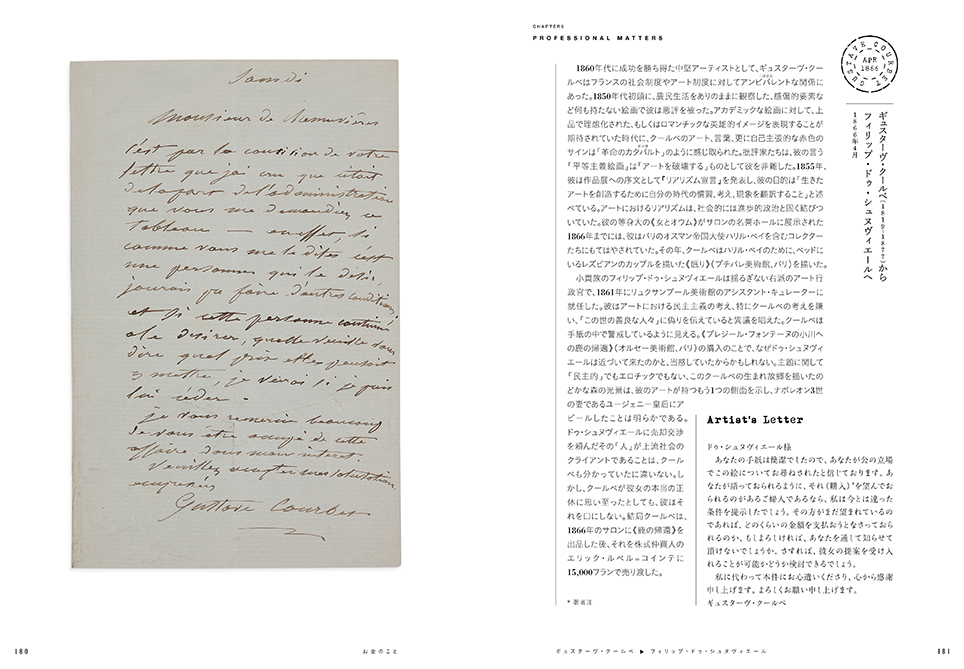 Samedi
Monsieur de Chennevières
C'est par la concision de votre
lettre que j'ai cru que c'était
de la part de l'administration
que vous me demandiez ce
tableau — en effet, si
comme vous me le dites c'est
une personne qui le désire
j'aurais pu faire d'autres conditions
et si cette personne continue
à le désirer, veuillez
dire quel prix elle pensait
y mettre, je verrai si je puis
lui céder —
je vous remercie beaucoup
de vous être occupé de cette
affaire dans mon intérêt.
Veuillez accepter mes salutations
empressées
Gustave Courbet
180
お金のこと
CHAPTER5
PROFESSIONAL MATTERS
GUSTAVE COURBET
APR
1866
ギュスターヴ・クールベ(1819-1877)から
フィリップ・ドゥ・シュヌヴィエールへ
1866年4月
1860年代に成功を勝ち得た中堅アーティストとして、ギュスターヴ・クー
ルベはフランスの社会制度やアート制度に対してアンビバレントな関係に
あった。1850年代初頭に、農民生活をありのままに観察した、感傷的要素な
ど何も持たない絵画で彼は悪評を被った。アカデミックな絵画に対して、上
品で理想化された、もしくはロマンチックな英雄的イメージを表現することが
期待されていた時代に、クールベのアート、言葉、更に自己主張的な赤色の
サインは「革命のカタパルト」のように感じ取られた。批評家たちは、彼の言う
「平等主義絵画」は「アートを破壊する」ものとして彼を非難した。1855年、
彼は作品展への序文として『リアリズム宣言』を発表し、彼の目的は「生きた
アートを創造するために自分の時代の慣習、考え、現象を翻訳すること」と述
べている。アートにおけるリアリズムは、社会的には進歩的政治と固く結びつ
いていた。彼の等身大の《女とオウム》がサロンの名誉ホールに展示された
1866年までには、彼はパリのオスマン帝国大使ハリル・ベイを含むコレクター
たちにもてはやされていた。その年、クールベはハリル・ベイのために、ベッドに
いるレズビアンのカップルを描いた《眠り》(プチパレ美術館、パリ)を描いた。
小貴族のフィリップ・ドゥ・シュヌヴィエールは揺るぎない右派のアート行
政官で、1861年にリュクサンブール美術館のアシスタント・キュレーターに
就任した。彼はアートにおける民主主義の考え、特にクールベの考えを嫌
い、「この世の善良な人々」に偽りを伝えていると異議を唱えた。クールベは
手紙の中で警戒しているように見える。《プレジール・フォンテーヌの小川へ
の鹿の帰還》(オルセー美術館、パリ)の購入のことで、なぜドゥ・シュヌヴィ
エールは近づいて来たのかと、当惑していたからかもしれない。主題に関して
「民主的」でもエロチックでもない、このクールベの生まれ故郷を描いたの
どかな森の光景は、彼のアートが持つもう1つの側面を示し、ナポレオン3世
の妻であるユージェニー皇后にア
ピールしたことは明らかである。
ドゥ・シュヌヴィエールに売却交渉
を頼んだその「人」が上流社会の
クライアントであることは、クール
ベも分かっていたに違いない。し
かし、クールベが彼女の本当の正
体に思い至ったとしても、彼はそ
れを口にしない。結局クールベは、
1866年のサロンに《鹿の帰還》を
出品した後、それを株式仲買人の
エリック・ルペル=コインテに
15,000フランで売り渡した。
* 著者注
Artist's Letter
ドゥ・シュヌヴィエール様
あなたの手紙は簡潔でしたので、あなたが公の立場
でこの絵についてお尋ねされたと信じております。あ
なたが語っておられるように、それ(購入)*を望んでお
られるのがあるご婦人であるなら、私は今とは違った
条件を提示したでしょう。その方がまだ望まれているの
であれば、どのくらいの金額を支払おうとなさっておら
れるのか、もしよろしければ、あなたを通して知らせて
頂けないでしょうか。さすれば、彼女の提案を受け入
れることが可能かどうか検討できるでしょう。
私に代わって本件にお心遣いくださり、心から感謝
申し上げます。よろしくお願い申し上げます。
ギュスターヴ・クールベ
ギュスターヴ・クールベ ▶ フィリップ・ドゥ・シュヌヴィエール
181